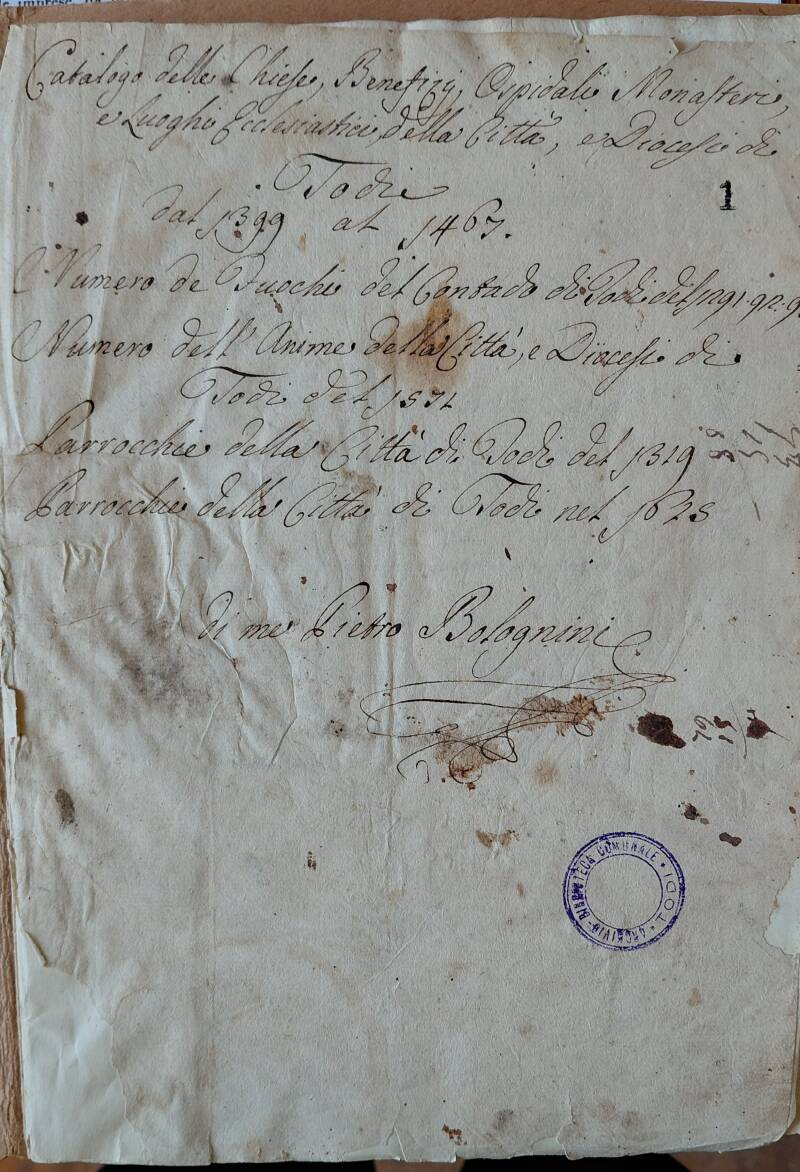 Catalogo delle Chiese, Benefizj, Ospidali Monasteri,
e Luoghi Ecclesiastici della Città, e Diocesi di
Todi
1
dal 1399 al 1467.
Numero de Fuochi del Contado di Todi del 1291.92.
Numero dell' Anime della Città, e Diocesi di
Todi del 1571
Parrocchie della Città di Todi del 1319
Parrocchie della Città di Todi nel 1625
di me Pietro Bolognini
ARCHIVIO - BIBLIOTECA COMUNALE • TODI •